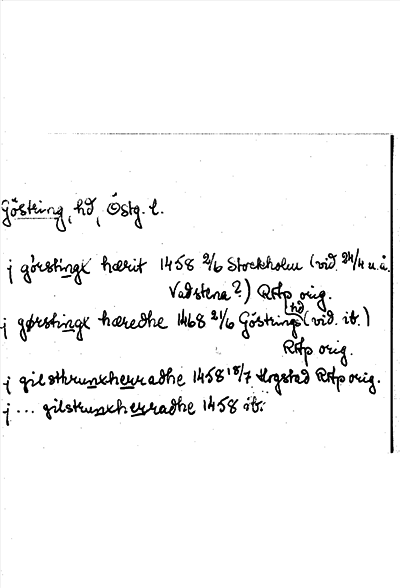 Göstring, hd, Östg. l.
j görstingx hærit 1458 2/6 Stockholm (vid. 24/4 u. å.
Vadstena?) RAp orig.
j gørstingx hæredhe 1468 21/6 Göstrings hd (vid. ib.)
RAp orig.
j gilsthrunxherradhe 1458 18/7 Hogstad RAp orig.
j ... gilstrunxherradhe 1458 ib.